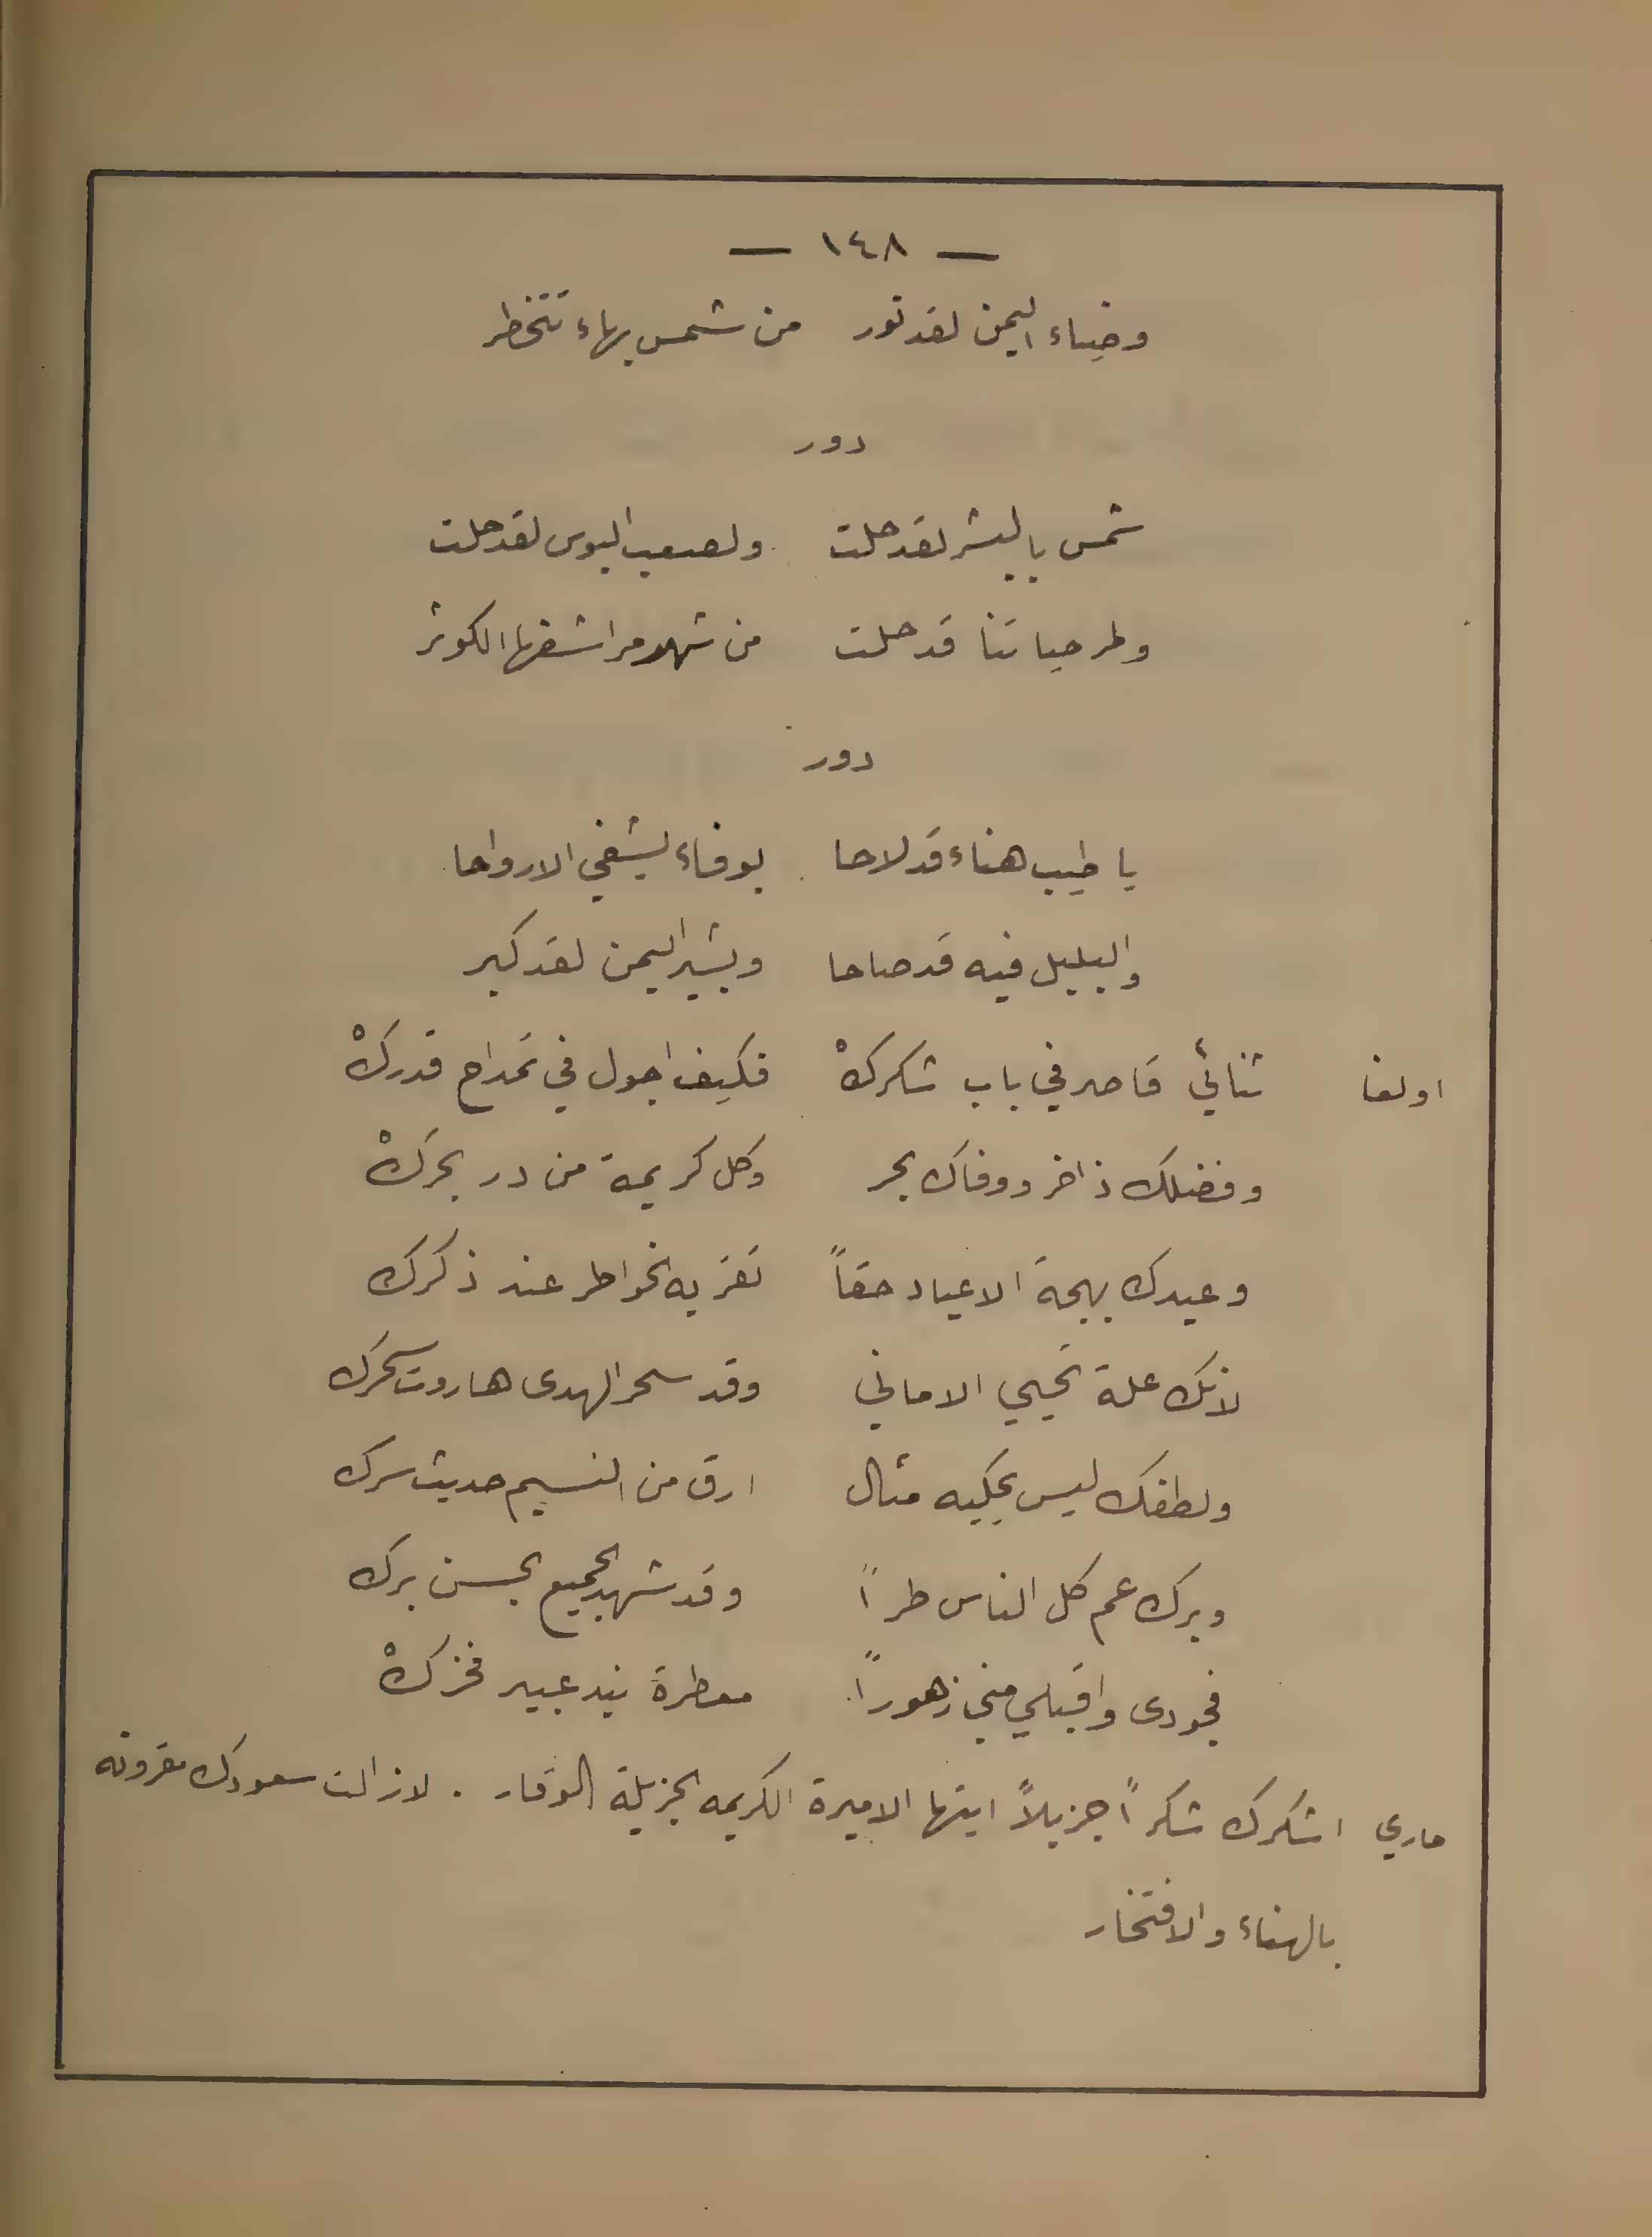 — ١٤٨ —
وضياء اليمن لقد نور من شمس بهاء تتخطر
دور
شمس بالبشر لقد حلت ولصعب البوس لقد حلت
وطر حياتنا قد حلت من شهد مراشفها الكوثر
دور
يا طيب هناء قد لاحا بوفاء يشفي الارواحا
والبلبل فيه قد صاحا وبشير اليمن لقد كبر
اولغا ثنائي قاصر في باب شكركْ فكيف اجول في تمداح قدركْ
وفضلك ذاخر ووفاك بحر وكل كريمة من در بحركْ
وعيدك بهجة الاعياد حقاً تقر به الخواطر عند ذكرك
لانك علة تحيي الاماني وقد سحر الهدى هاروت سحرك
ولطفك ليس يحكيه مثال ارق من النسيم حديث سرك
وبرك عم كل الناس طراً وقد شهد الجميع بحسن برك
فجودى واقبلي مني زهوراً معطرة بند عبير فخركْ
ماري اشكرك شكراً جزيلاً ايتها الاميرة الكريمه الجزيلة الوقار . لازالت سعودك مقرونه
بالهناء والافتخار